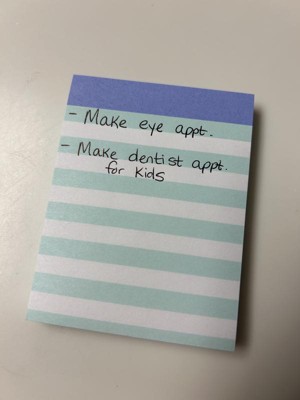 - Make eye appt.
- Make dentist appt.
for Kids